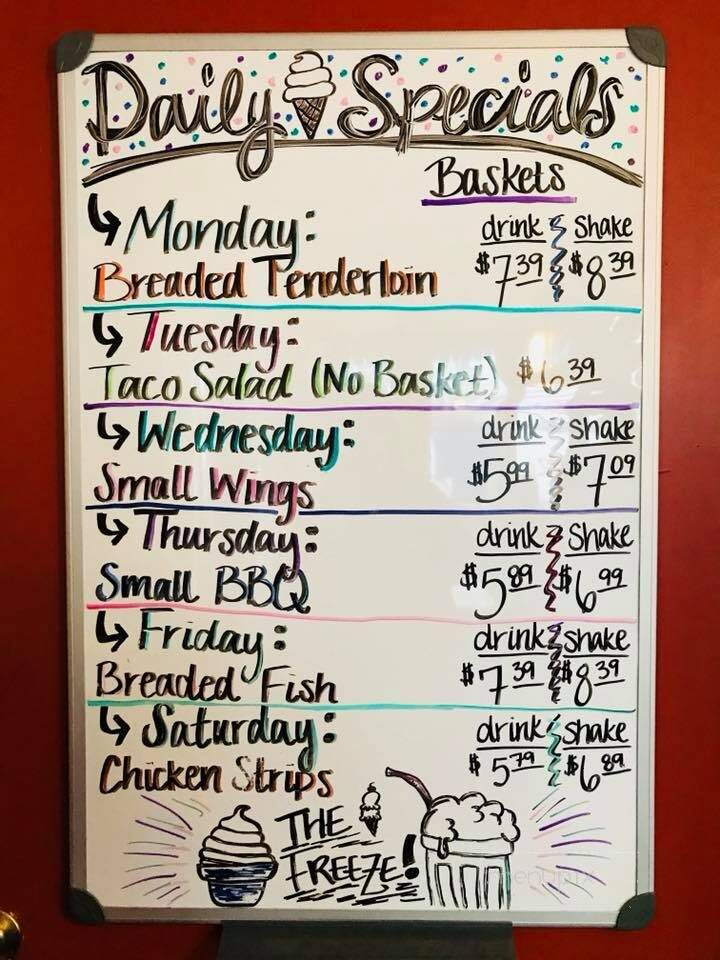 Daily Specials
Baskets
Monday: drink Shake
Breaded Tenderloin $7.39 $8.39
Tuesday:
Taco Salad (No Basket) $6.39
Wednesday: drink Shake
Small Wings $5.99 $7.09
Thursday: drink Shake
Small BBQ $5.89 $6.99
Friday: drink shake
Breaded Fish $7.39 $8.39
Saturday: drink shake
Chicken Strips $5.79 $6.89
THE
FREEZE!